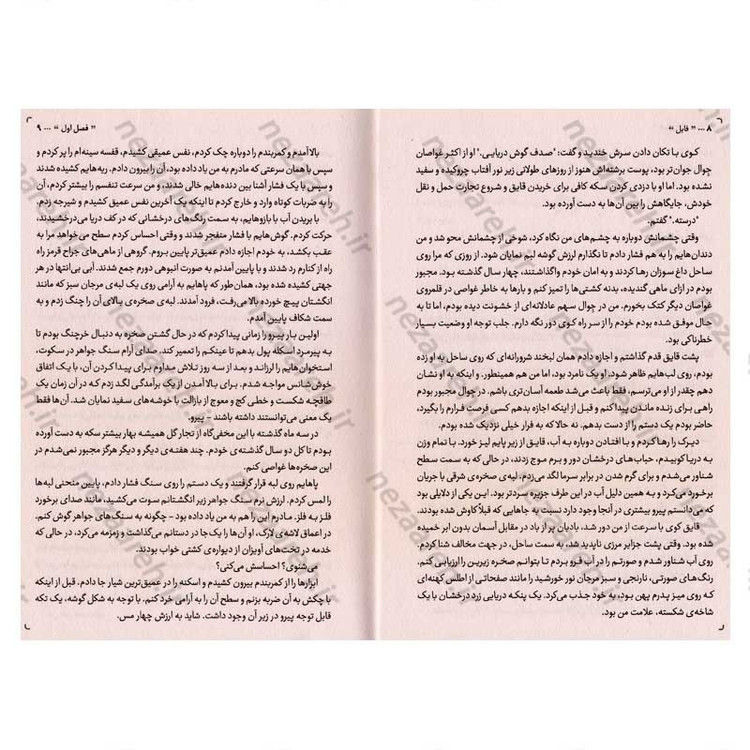 ۸ ... " فابل "
کوی با تکان دادن سرش خندید و گفت: "صدف گوش دریایی." او از اکثر غواصان
جوال جوان‌تر بود، پوست برشته‌اش هنوز از روزهای طولانی زیر نور آفتاب چروکیده و سفید
نشده بود. اما او با دزدی کردن سکه کافی برای خریدن قایق و شروع تجارت حمل و نقل
خودش، جایگاهش را بین آن‌ها به دست آورده بود.
"درسته." گفتم.
وقتی چشمانش دوباره به چشم‌های من نگاه کرد، شوخی از چشمانش محو شد و من
دندان‌هایم را به هم فشار دادم تا نگذارم لرزش گوشه لبم نمایان شود. از روزی که مرا روی
ساحل داغ سوزان رها کردند و به امان خودم واگذاشتند، چهار سال گذشته بود. مجبور
بودم در ازای ماهی گندیده، بدنه کشتی‌ها را تمیز کنم و بارها به خاطر غواصی در قلمروی
غواصان دیگر کتک بخورم. من در جوال سهم عادلانه‌ای از خشونت دیده بودم، اما تا به
حال موفق شده بودم خودم را از سر راه کوی دور نگه دارم. جلب توجه او وضعیت بسیار
خطرناکی بود.
پشت قایق قدم گذاشتم و اجازه دادم همان لبخند شرورانه‌ای که روی ساحل به او زده
بودم، روی لب‌هایم ظاهر شود. او یک نامرد بود، اما من هم همینطور. و اینکه به او نشان
دهم چقدر از او می‌ترسم، فقط باعث می‌شد طعمه آسان‌تری باشم. در جوال مجبور بودم
راهی برای زنده ماندن پیدا کنم و قبل از اینکه اجازه بدهم کسی فرصت فرارم را بگیرد،
حاضر بودم یک دستم را از دست بدهم. نه حالا که به فرار خیلی نزدیک شده بودم.
دیرک را رها کردم و با افتادن دوباره به آب، قایق از زیر پایم لیز خورد. با تمام وزن
به دریا کوبیدم، حباب‌های درخشان دور و برم موج زدند، در حالی که به سمت سطح
شناور می‌شدم و برای گرم شدن در برابر سرما لگد می‌زدم. لبه‌ی صخره‌ی شرقی با جریان
برخورد می‌کرد و به همین دلیل آب در این طرف جزیره سردتر بود. این یکی از دلایلی بود
که می‌دانستم پیرو بیشتری در آنجا وجود دارد نسبت به جاهایی که قبلا کاوش شده بودند.
قایق کوی با سرعت از من دور شد، بادبان پر از باد در مقابل آسمان بدون ابر خمیده
شده بود. وقتی پشت جزایر مرزی ناپدید شد، به سمت ساحل، در جهت مخالف شنا کردم.
روی آب شناور شدم و صورتم را در آب فرو بردم تا بتوانم صخره زیرین را ارزیابی کنم.
رنگ‌های صورتی، نارنجی و سبز مرجان نور خورشید را مانند صفحاتی از اطلس کهنه‌ای
که روی میز پدرم پهن بود، به خود جذب می‌کرد. یک پنکه دریایی زرد درخشان با یک
شاخه‌ی شکسته، علامت من بود.
" فصل اول " ... ۹
بالا آمدم و کمربندم را دوباره چک کردم، نفس عمیقی کشیدم، قفسه سینه‌ام را پر کردم و
سپس با همان سرعتی که مادرم به من یاد داده بود، آن را بیرون دادم. ریه‌هایم کشیده شدند
و سپس با یک فشار آشنا بین دنده‌هایم خالی شدند، و من سرعت تنفسم را بیشتر کردم، آن
را به ضربات کوتاه وارد و خارج کردم تا اینکه یک آخرین نفس عمیق کشیدم و شیرجه زدم.
با بریدن آب با بازوهایم، به سمت رنگ‌های درخشانی که در کف دریا می‌درخشیدند،
حرکت کردم. گوش‌هایم با فشار منفجر شدند و وقتی احساس کردم سطح می‌خواهد مرا به
عقب بکشد، به خودم اجازه دادم عمیق‌تر پایین بروم. گروهی از ماهی‌های جراح قرمز راه
راه از کنارم رد شدند و با پایین آمدنم به صورت انبوهی دورم جمع شدند. آبی بی‌انتها در هر
جهتی کشیده شده بود، همان‌طور که پاهایم به آرامی روی یک لبه‌ی مرجان سبز که مانند
انگشتان پیچ خورده بالا می‌رفت، فرود آمدند. لبه‌ی صخره‌ی بالای آن را چنگ زدم و به
سمت شکاف پایین آمدم.
اولین بار پیرو را زمانی پیدا کردم که در حال گشتن صخره به دنبال خرچنگ بودم تا
به پیرمرد اسکله پول بدهم تا عینکم را تعمیر کند. صدای آرام سنگ جواهر در سکوت،
استخوان‌هایم را لرزاند و بعد از سه روز تلاش مداوم برای پیدا کردن آن، با یک اتفاق
خوش‌شانس مواجه شدم. برای بالا آمدن از یک برآمدگی لگد زدم که در آن زمان یک
طاقچه شکست و خطی کج و معوج از بازالت با خوشه‌های سفید نمایان شد. آن‌ها فقط
یک معنی می‌توانستند داشته باشند - پیرو.
در سه ماه گذشته با این مخفی‌گاه از تجار گل همیشه بهار بیشتر سکه به دست آورده
بودم تا کل دو سال گذشته‌ی خودم. چند هفته‌ی دیگر و دیگر هرگز مجبور نمی‌شدم در
این صخره‌ها غواصی کنم.
پاهایم روی لبه قرار گرفتند و یک دستم را روی سنگ فشار دادم، پایین منحنی لبه‌ها
را لمس کردم. لرزش نرم سنگ جواهر زیر انگشتانم سوت می‌کشید، مانند صدای برخورد
فلز به فلز. مادرم این را هم به من یاد داده بود - چگونه به سنگ‌های جواهر گوش کنم.
در اعماق لاشه‌ی لارک، او آن‌ها را یک جا در دستانم می‌گذاشت و زمزمه می‌کرد، در حالی که
خدمه در تخت‌های آویزان از دیواره‌ی کشتی خواب بودند.
می‌شنوی؟ احساسش می‌کنی؟
ابزارها را از کمربندم بیرون کشیدم و اسکنه را روی در عمیق‌ترین شیار جا دادم. قبل از اینکه
با چکش به آن ضربه بزنم و سطح آن را به آرامی خرد کنم. با توجه به شکل گوشه، یک تکه
قابل توجه پیرو در زیر آن وجود داشت. شاید به ارزش چهار مس.
nezaareh.ir